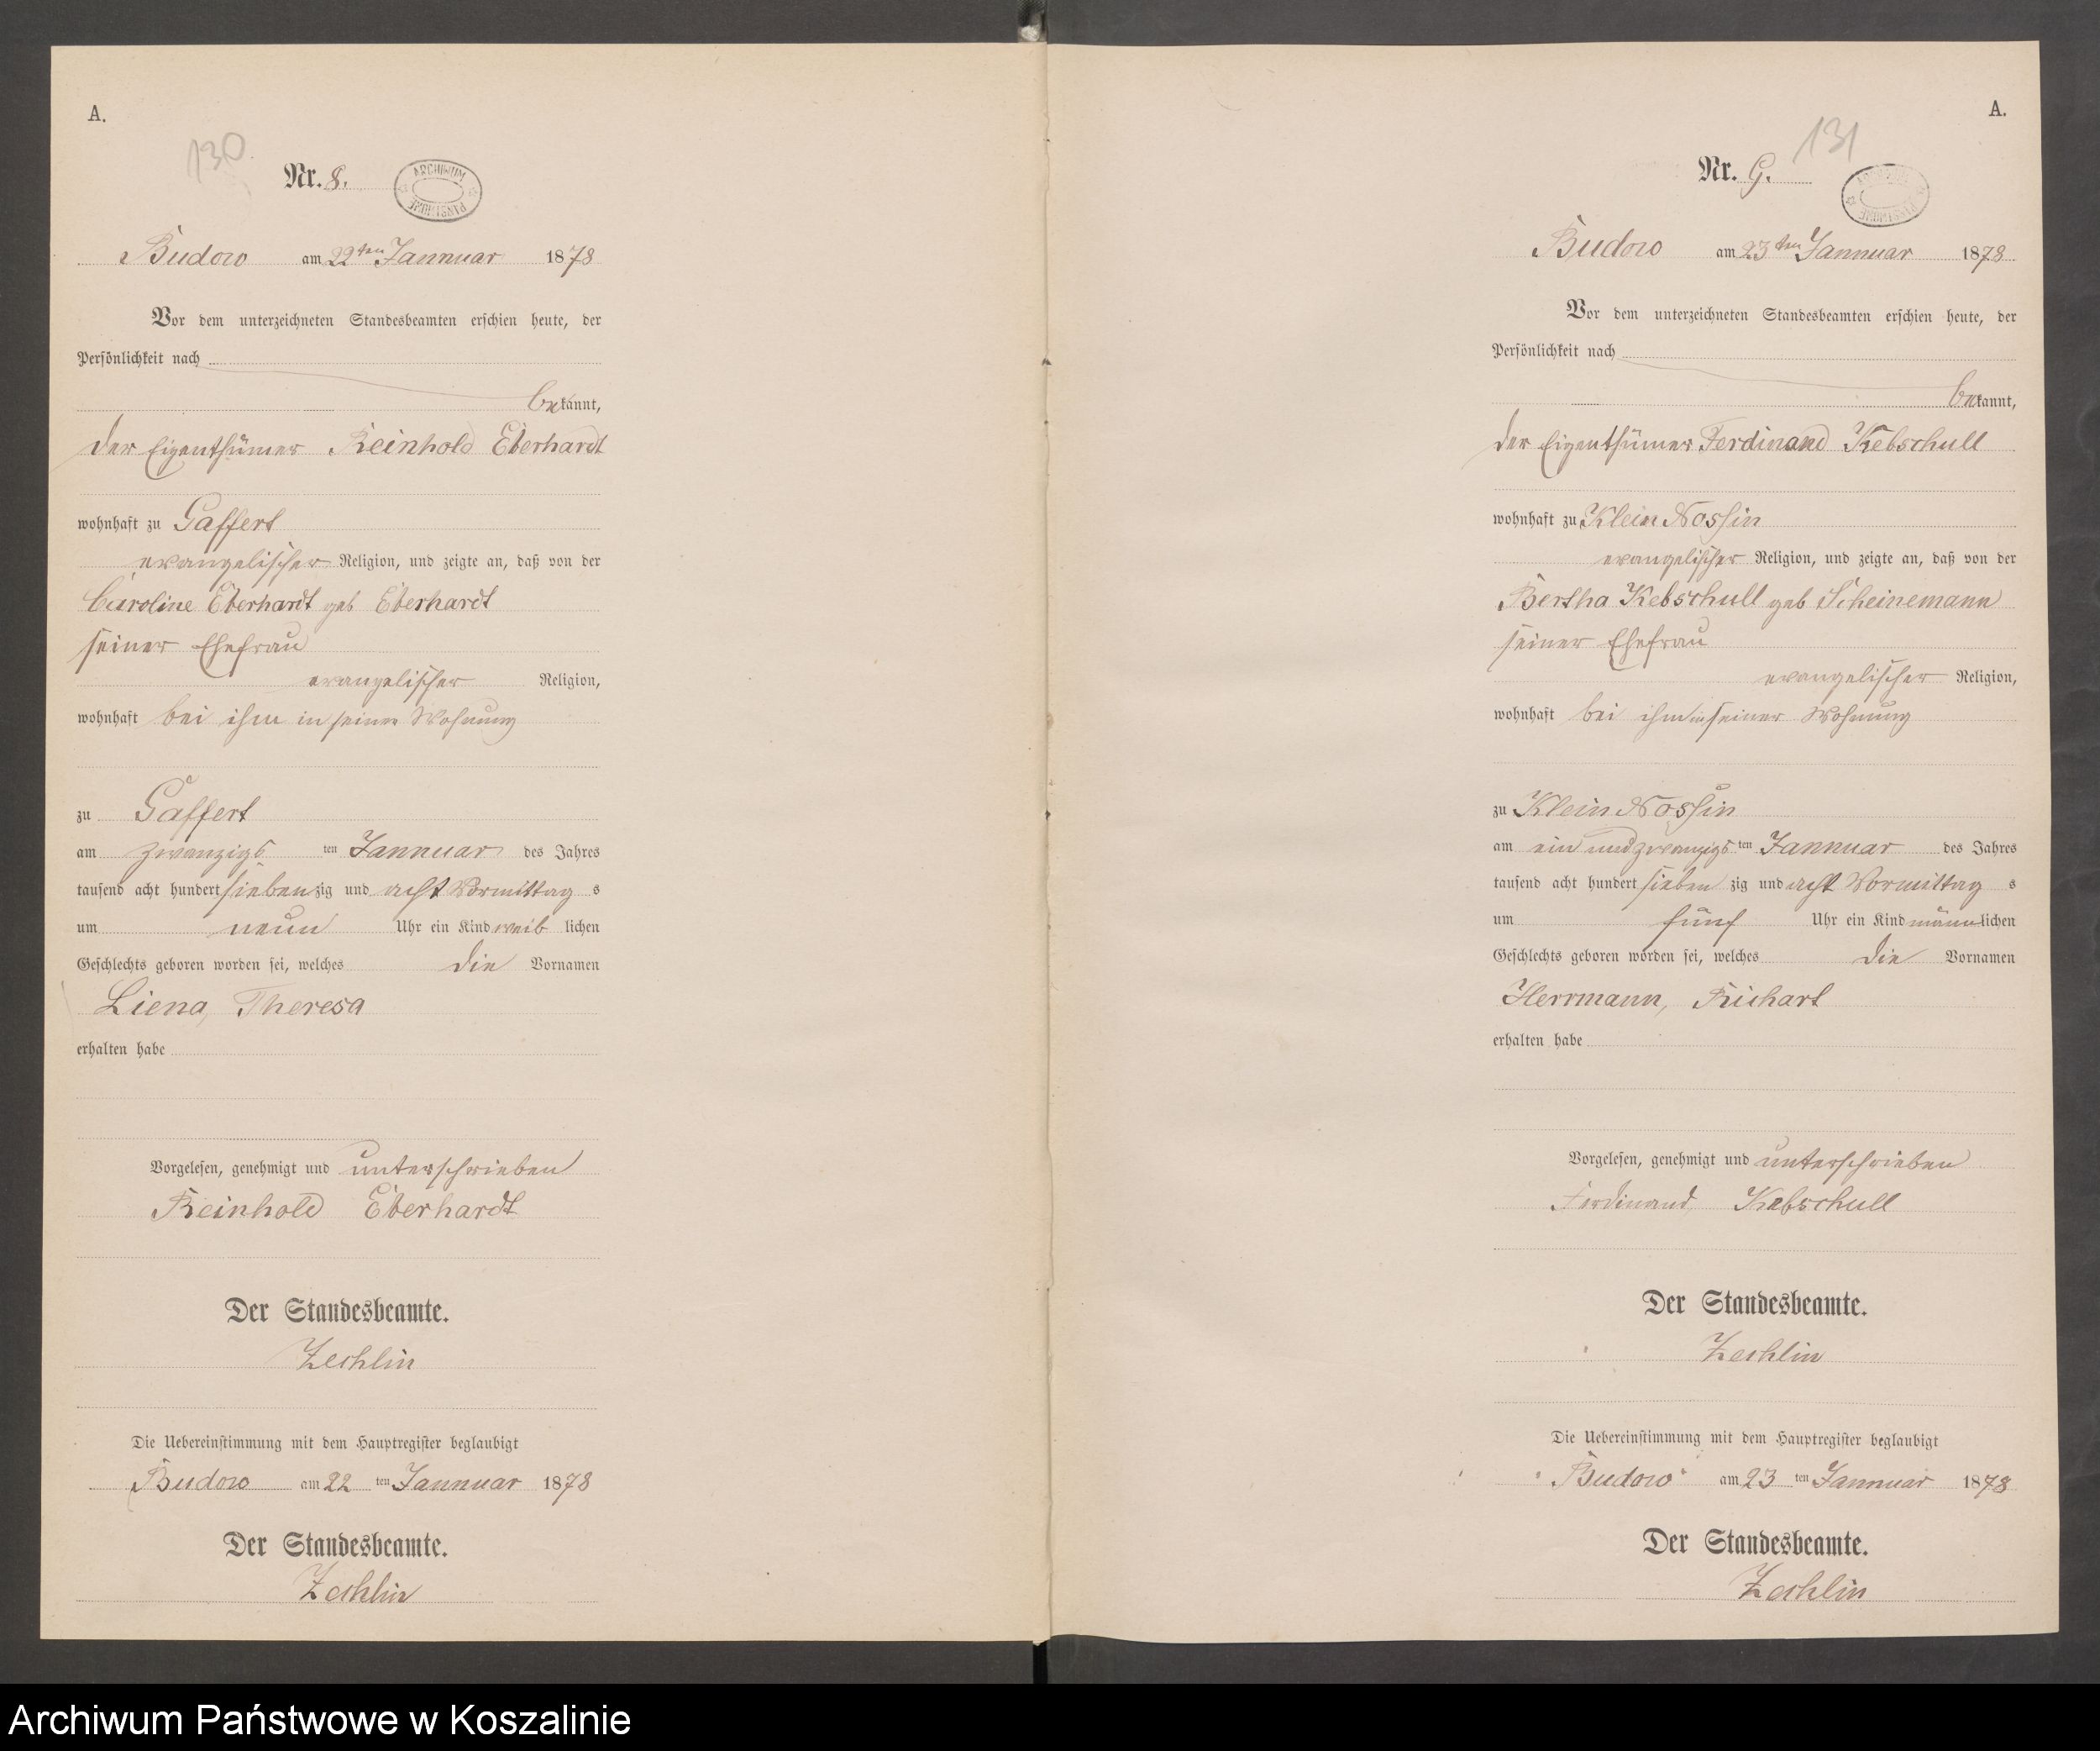 A.
130
Nr. 8.
ARCHIWUM PAŃSTWOWE
Budow am 22ten Jannuar 1878
Vor dem unterzeichneten Standesbeamten erschien heute, der
Persönlichkeit nach
bekannt,
der Eigenthümer Reinhold Eberhardt
wohnhaft zu Gaffert
evangelischer Religion, und zeigte an, daß von der
Caroline Eberhardt geb Eberhardt
seiner Ehefrau
evangelischer Religion,
wohnhaft bei ihm in seiner Wohnung
zu Gaffert
am zwanzigs ten Jannuar des Jahres
tausend acht hundert sieben zig und acht Vormittag s
um neun Uhr ein Kind weib lichen
Geschlechts geboren worden sei, welches die Vornamen
Liena, Theresa
erhalten habe
Vorgelesen, genehmigt und unterschrieben
Reinhold Eberhardt
Der Standesbeamte.
Zechlin
Die Uebereinstimmung mit dem Hauptregister beglaubigt
Budow am 22 ten Jannuar 1878
Der Standesbeamte.
Zechlin
A.
131
Nr. 9.
ARCHIWUM PAŃSTWOWE
Budow am 23ten Jannuar 1878
Vor dem unterzeichneten Standesbeamten erschien heute, der
Persönlichkeit nach
bekannt,
der Eigenthümer Ferdinand Kebschull
wohnhaft zu Klein Nossin
evangelischer Religion, und zeigte an, daß von der
Bertha Kebschull geb Scheinemann
seiner Ehefrau
evangelischer Religion,
wohnhaft bei ihm in seiner Wohnung
zu Klein Nossin
am ein und zwanzigs ten Jannuar des Jahres
tausend acht hundert sieben zig und acht Vormittag s
um fünf Uhr ein Kind männlichen
Geschlechts geboren worden sei, welches die Vornamen
Herrmann, Richart
erhalten habe
Vorgelesen, genehmigt und unterschrieben
Ferdinand Kebschull
Der Standesbeamte.
Zechlin
Die Uebereinstimmung mit dem Hauptregister beglaubigt
Budow am 23 ten Jannuar 1878
Der Standesbeamte.
Zechlin
Archiwum Państwowe w Koszalinie